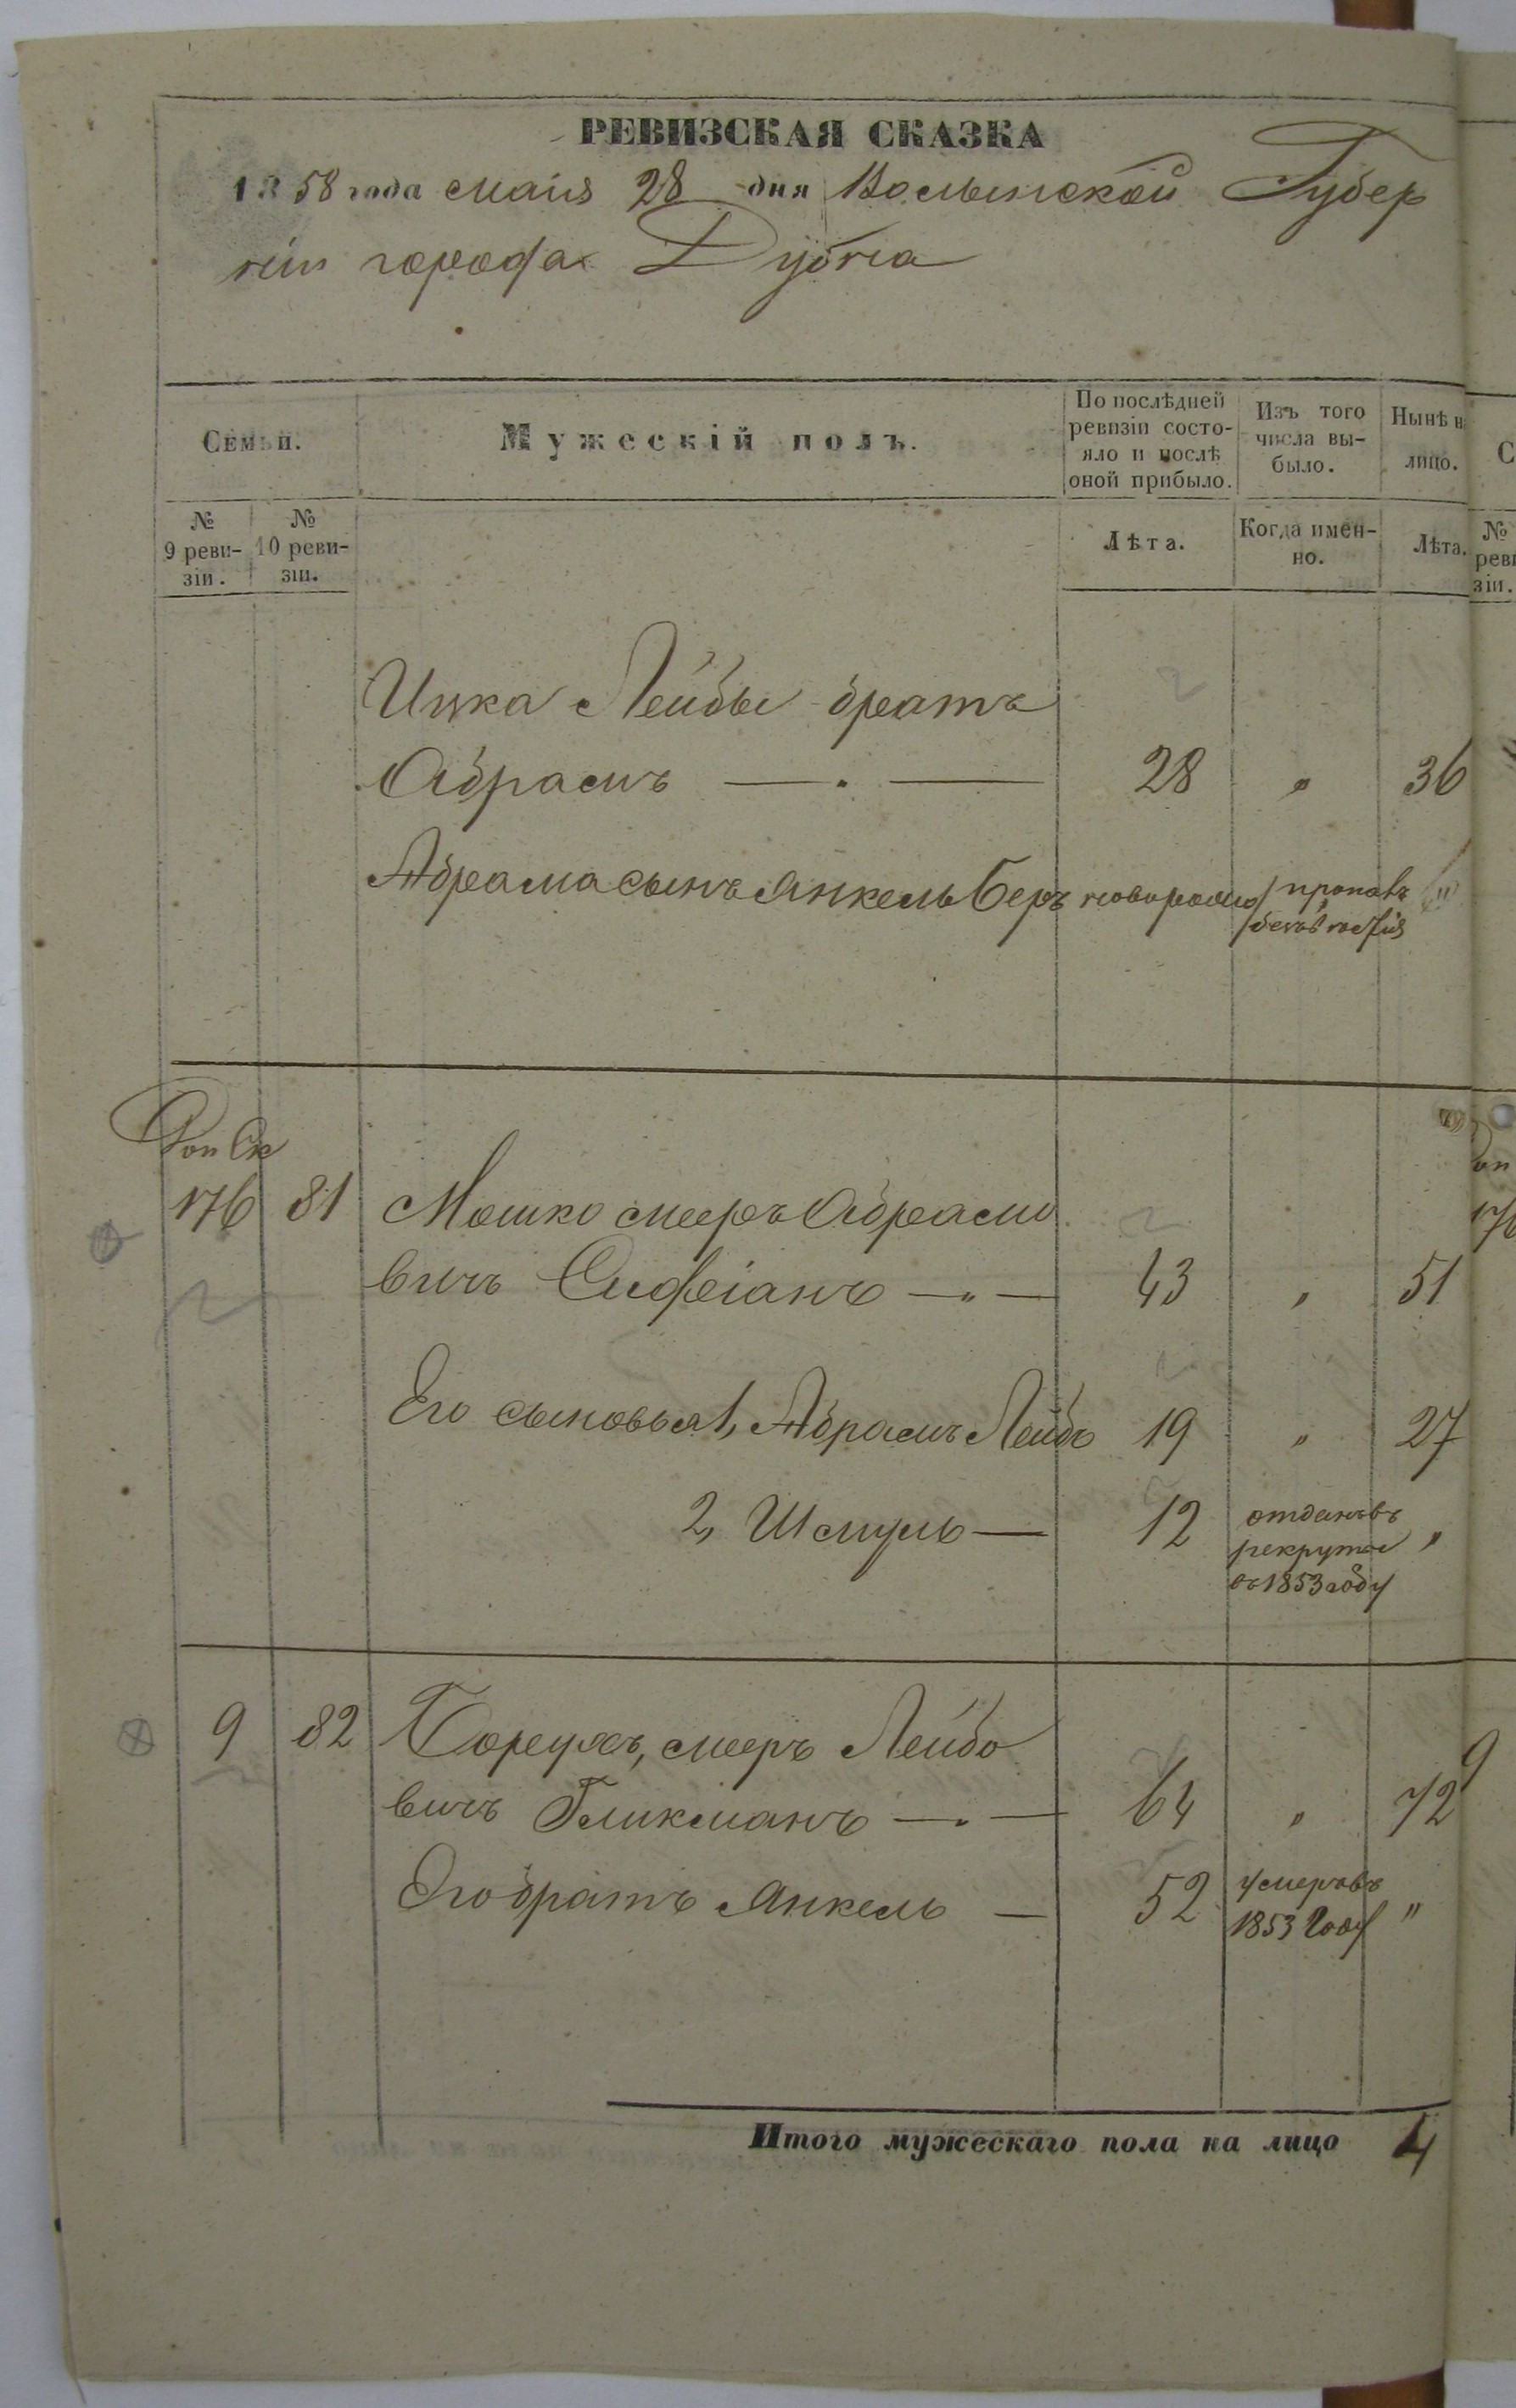 РЕВИЗСКАЯ СКАЗКА
1858 года маія 28 дня Волынской Губер
ніи города Дубна
Семьи.
Мужескій полъ.
По послѣдней ревизіи состо-
яло и послѣ оной прибыло.
Изъ того числа вы-
было.
Нынѣ н
лицо.
№ 9 реви-
зіи.
№ 10 реви-
зіи.
Лѣта.
Когда имен-
но.
Лѣта.
Ицка Лейбы братъ
Абрамъ 28 " 36
Абрама сынъ Янкель Беръ новорожд пропавъ "
безъ вести
Доп Ск
176 81 Мошко мееръ Абрамо
вичъ 43 " 51
Его сыновья 1, Абрамъ Лейбъ 19 " 27
2, Шмуль 12 отданъ въ
рекруты "
въ 1853 году
9 82 Борухъ, мееръ Лейбо
вичъ Гликманъ 64 " 72
Его братъ Янкель 52 умеръ въ
1853 году "
Итого мужескаго пола на лицо 4